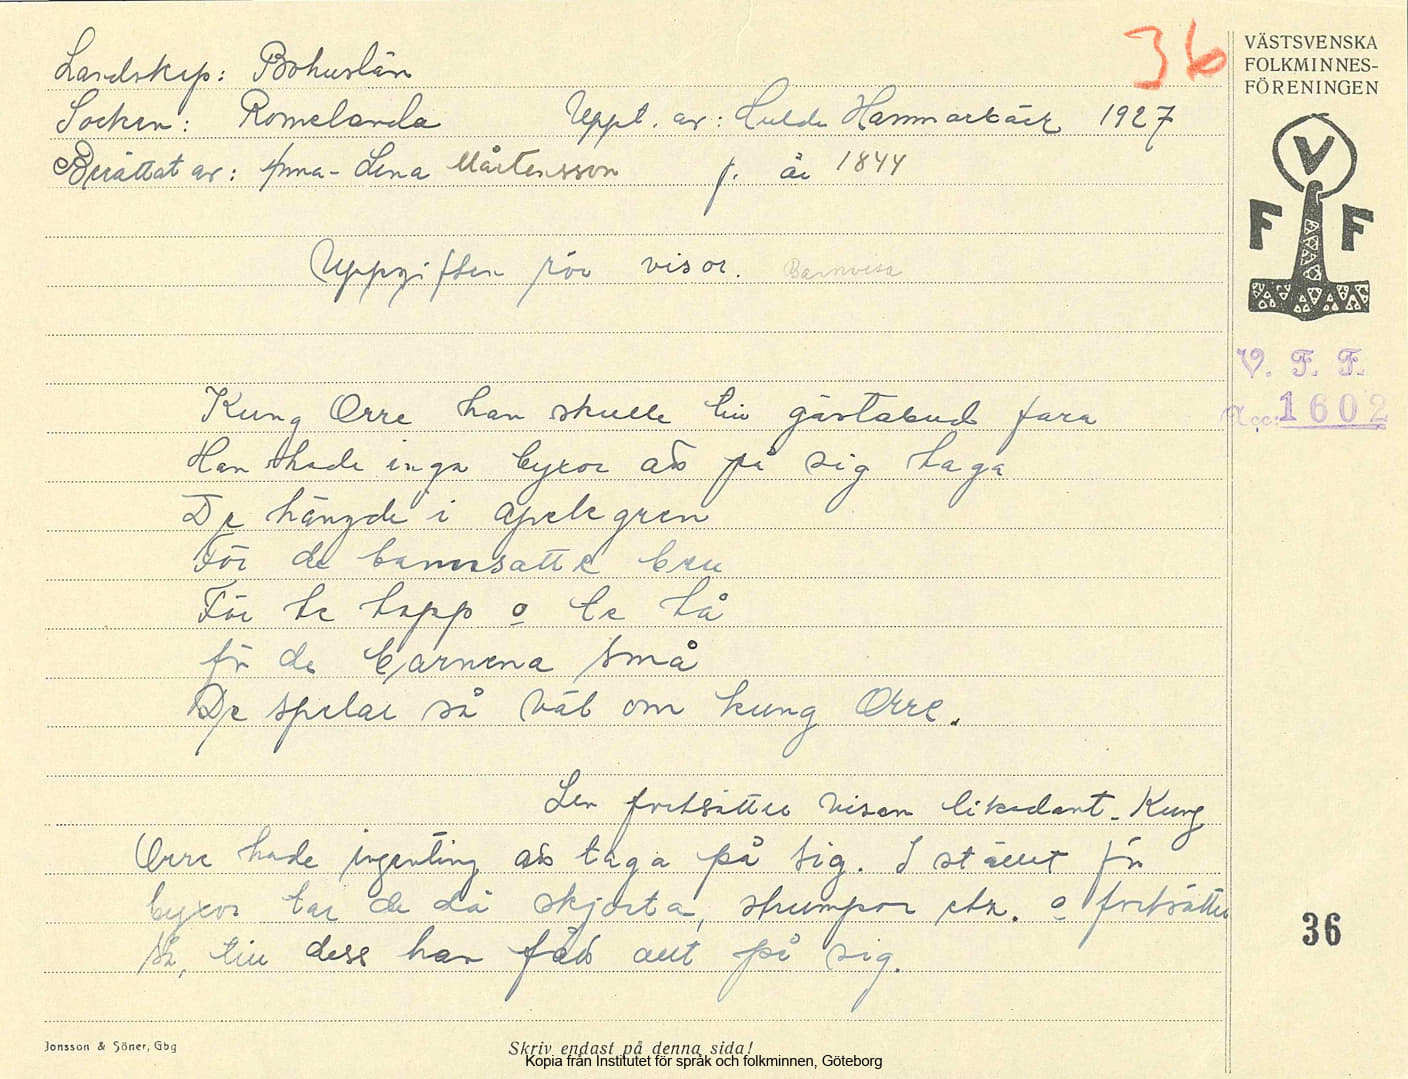 36
VÄSTSVENSKA
FOLKMINNES-
FÖRENINGEN
V
F F
V. F. F.
Acc: 1602
Landskap: Bohuslän
Socken: Romelanda Uppt. av: Hulda Hammarbäck 1927
Berättat av: Anna-Lena Mårtensson f. år 1844
Uppgiften rör visor. Barnvisa
Kung Orre han skulle till gästabud fara
Han hade inga byxor att på sig taga
De hängde i apelegren
För de
För te topp o te tå
för de barnena små
De spelar så väl om kung Orre.
Sen fortsätter visan likadant. Kung
Orre hade ingenting att taga på sig. I stället för
byxor tar de då skjorta, strumpor etc. o fortsätter
så, till dess han fått allt på sig.
36
Jonsson & Söner, Gbg
Skriv endast på denna sida!
Kopia från Institutet för språk och folkminnen, Göteborg